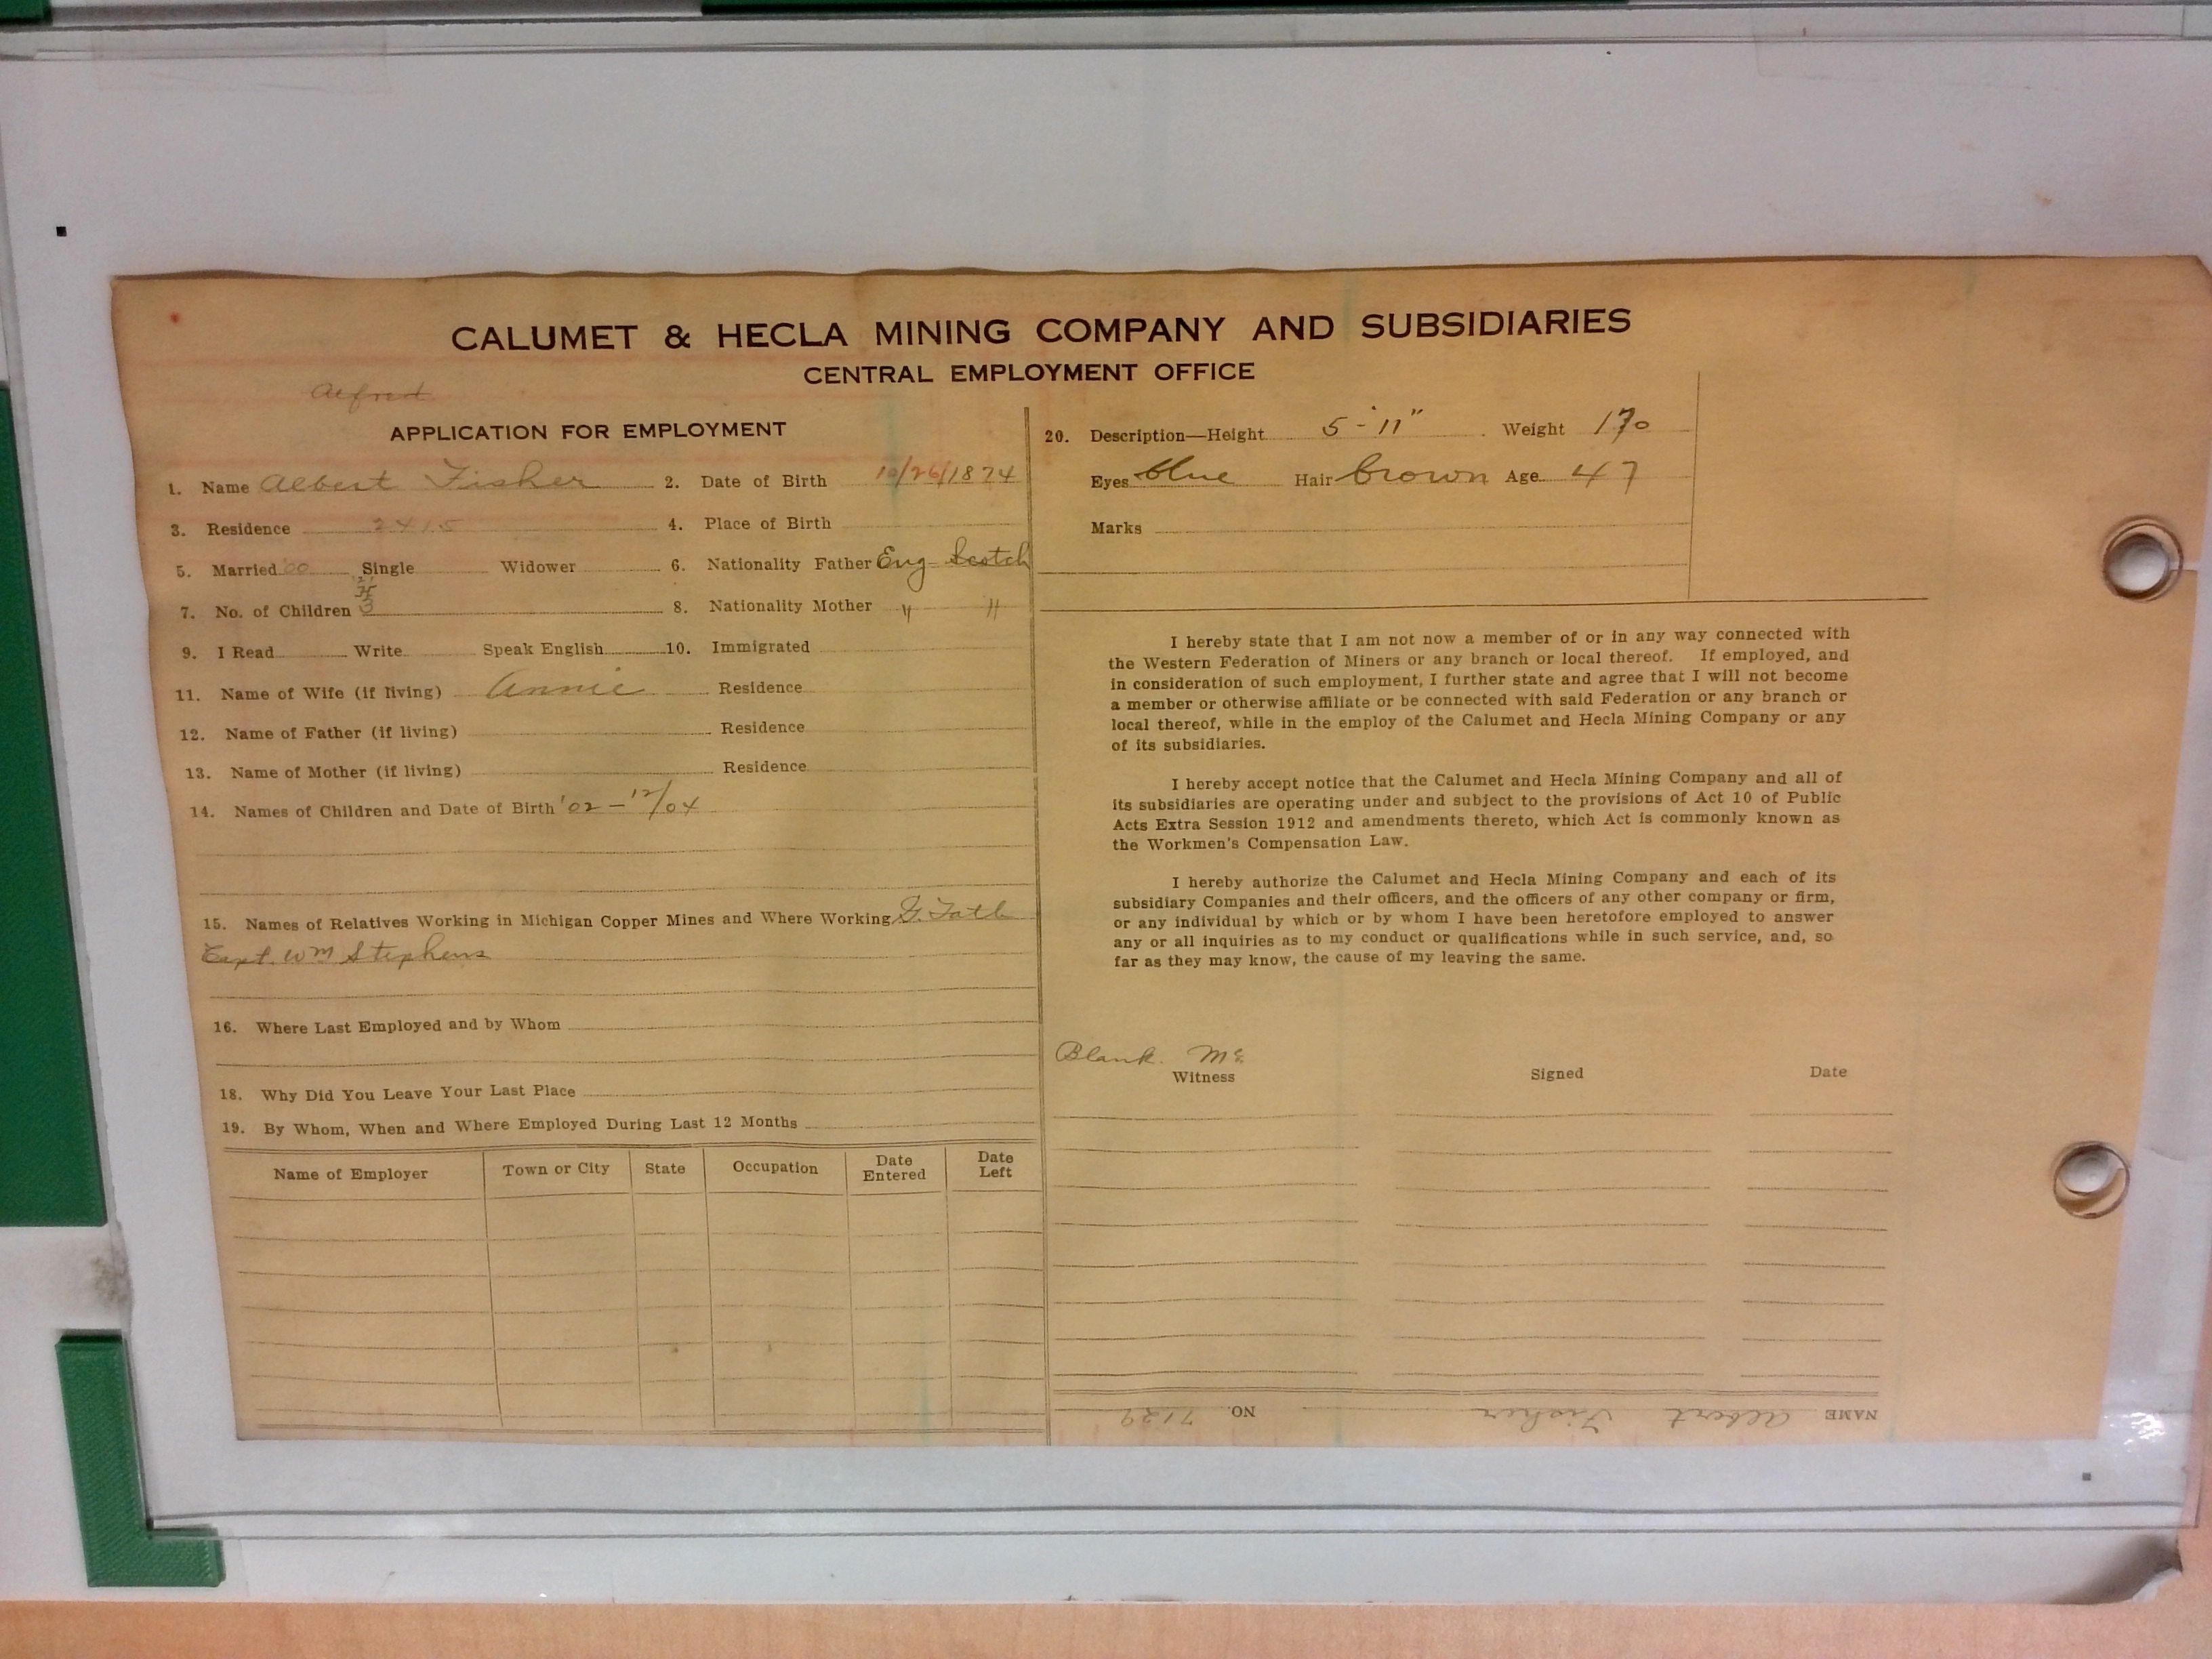 CALUMET & HECLA MINING COMPANY AND SUBSIDIARIES
CENTRAL EMPLOYMENT OFFICE
Alfred
APPLICATION FOR EMPLOYMENT
1. Name Albert Fisher 2. Date of Birth 10/26/1874
3. Residence 2415 4. Place of Birth
5. Married '00 Single Widower 6. Nationality Father Eng-Scotch
7. No. of Children 3 8. Nationality Mother " "
9. I Read Write Speak English 10. Immigrated
11. Name of Wife (if living) Annie Residence
12. Name of Father (if living) Residence
13. Name of Mother (if living) Residence
14. Names of Children and Date of Birth '02 - 12/04
15. Names of Relatives Working in Michigan Copper Mines and Where Working F. Fath
Capt. Wm Stephens
16. Where Last Employed and by Whom
18. Why Did You Leave Your Last Place
19. By Whom, When and Where Employed During Last 12 Months
Name of Employer Town or City State Occupation Date Entered Date Left
20. Description—Height 5'-11" Weight 170
Eyes blue Hair brown Age 47
Marks
I hereby state that I am not now a member of or in any way connected with
the Western Federation of Miners or any branch or local thereof. If employed, and
in consideration of such employment, I further state and agree that I will not become
a member or otherwise affiliate or be connected with said Federation or any branch or
local thereof, while in the employ of the Calumet and Hecla Mining Company or any
of its subsidiaries.
I hereby accept notice that the Calumet and Hecla Mining Company and all of
its subsidiaries are operating under and subject to the provisions of Act 10 of Public
Acts Extra Session 1912 and amendments thereto, which Act is commonly known as
the Workmen's Compensation Law.
I hereby authorize the Calumet and Hecla Mining Company and each of its
subsidiary Companies and their officers, and the officers of any other company or firm,
or any individual by which or by whom I have been heretofore employed to answer
any or all inquiries as to my conduct or qualifications while in such service, and, so
far as they may know, the cause of my leaving the same.
Blank
Witness Signed Date
NAME Albert Fisher NO. 7129